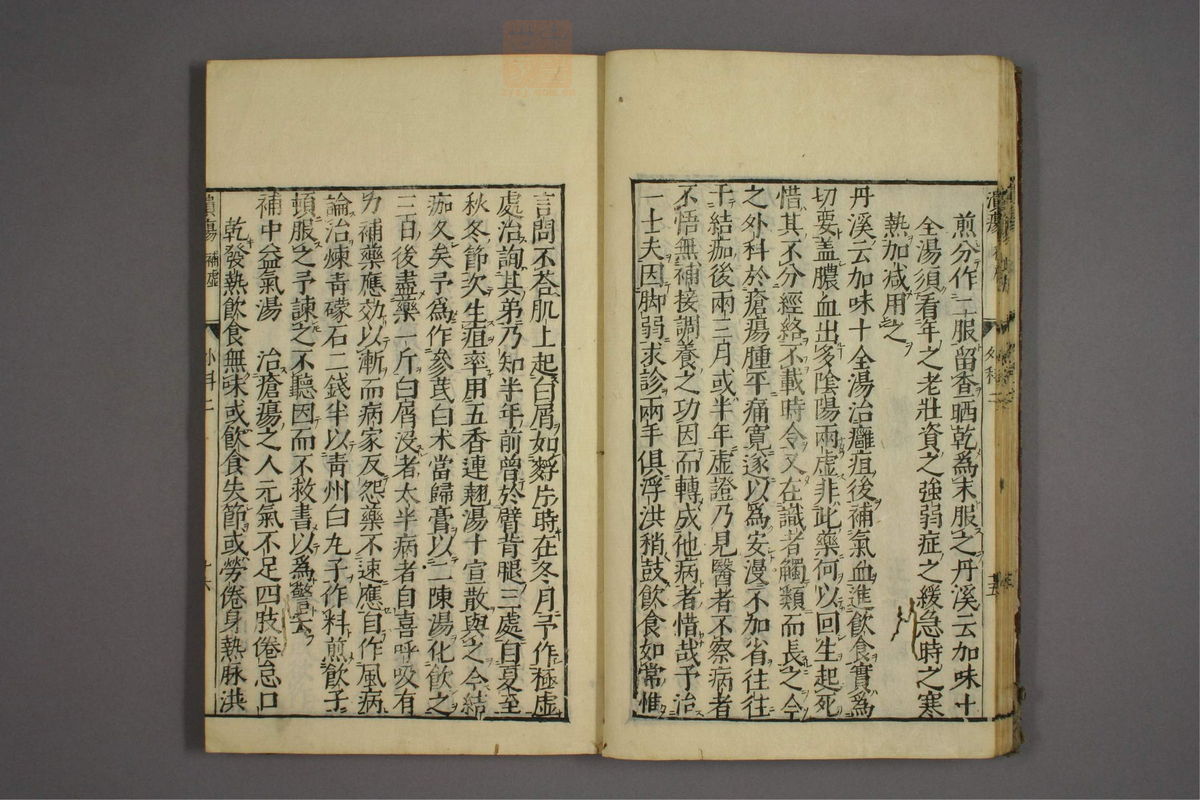 煎分作二服留查晒乾爲末服之丹溪云加味十
全湯須看年之老壯資之強弱症之緩急時之寒
熱加減用之
丹溪云加味十全湯治癰疽後補氣血進飲食實爲
切要盖膿血出多陰陽兩虛非此藥何以回生起死
惜其不分經絡不載時令又在識者觸類而長之今
之外科於瘡瘍腫平痛寛遂以爲安漫不加省往往
于結痂後兩三月或半年虛證乃見醫者不察病者
不悟無補接調養之功因而轉成他病者惜哉予治
一士夫因脚弱求診兩手俱浮洪稍鼓飲食如常惟
言問不荅肌上起白屑如麩片時在冬月予作極虛
處治詢其弟乃知半年前曾於臂背腿三處自夏至
秋冬節次生疽率用五香連翹湯十宣散與之今結
痂久矣予爲作參芪白术當歸膏以二陳湯化飲之
三百後盡藥一斤白屑沒者太半病者自喜呼吸有
力補藥應効以漸而病家反怨藥不速應自作風病
論治煉青礞石二錢半以青州白丸子作料煎飲子
頓服之予諫之不聽因而不救書以爲警云
補中益氣湯　治瘡瘍之人元氣不足四肢倦怠口
乾發熱飲食無味或飲食失節或勞倦身熱脉洪
潰瘍 補虛
外科二
十六